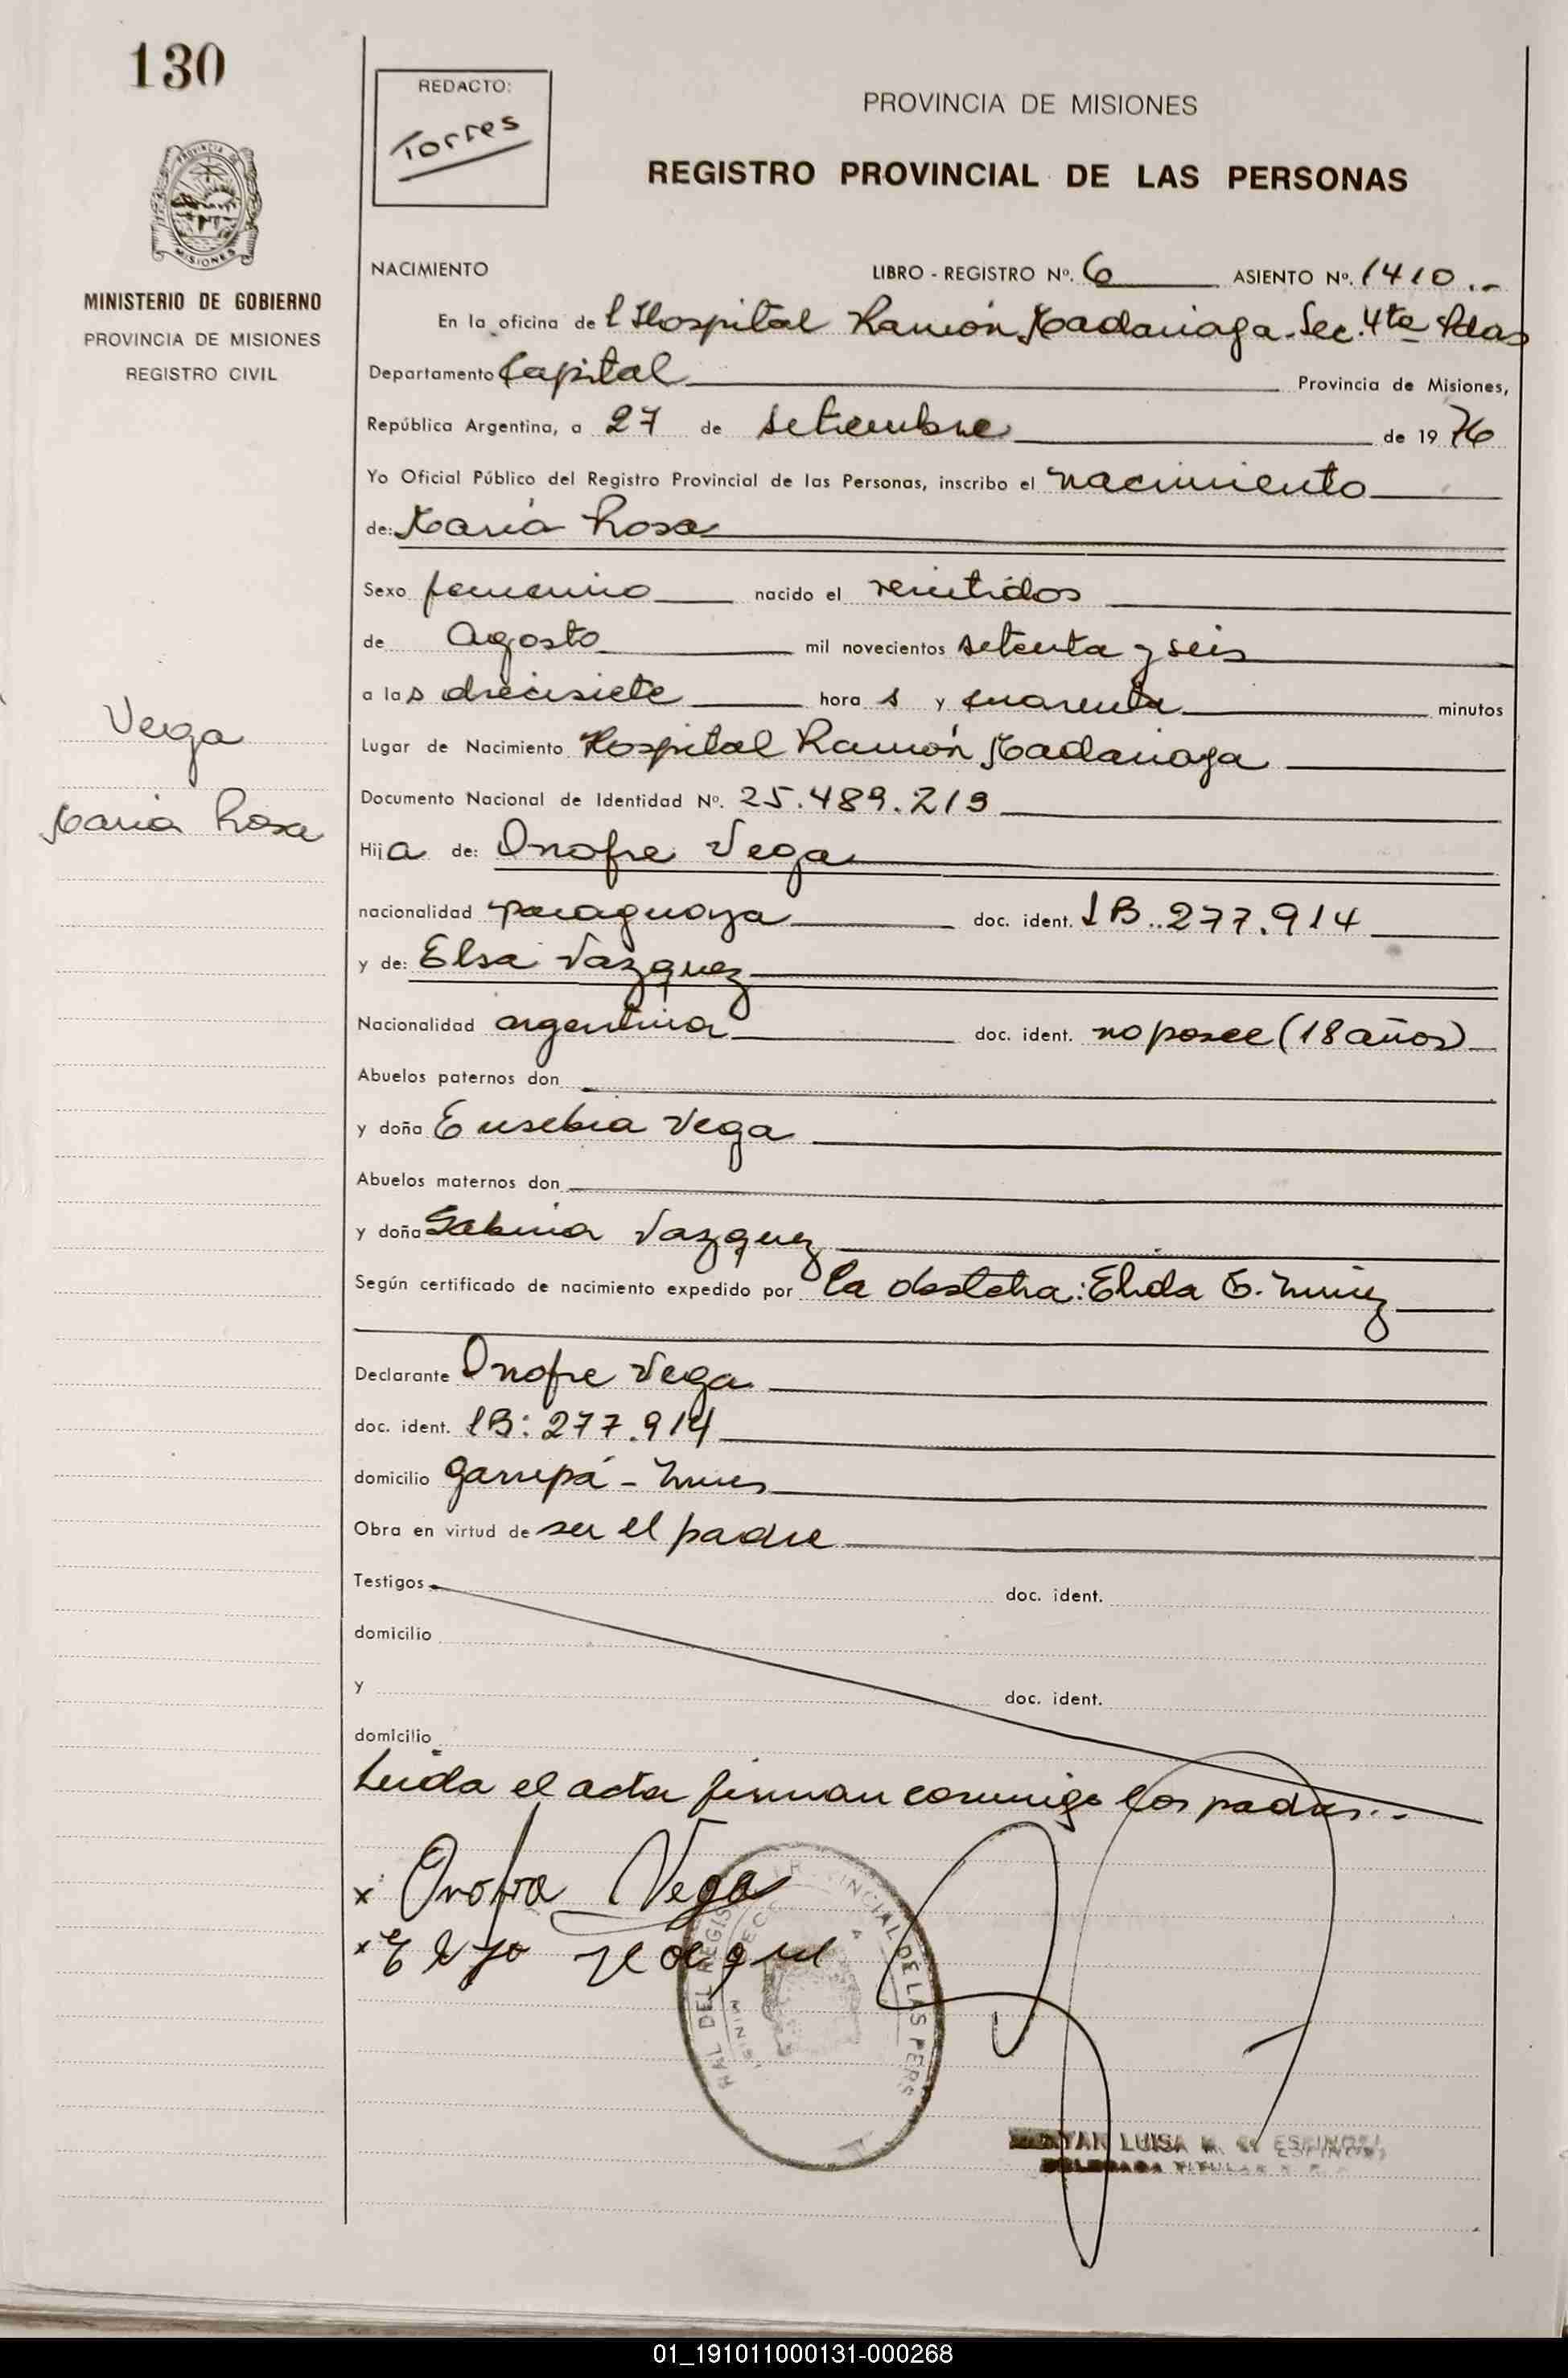 130
REDACTO:
Torres
PROVINCIA DE MISIONES
REGISTRO PROVINCIAL DE LAS PERSONAS
MISIONES
MINISTERIO DE GOBIERNO
PROVINCIA DE MISIONES
REGISTRO CIVIL
NACIMIENTO LIBRO - REGISTRO Nº. 6 ASIENTO Nº. 1410..-
En la oficina de l Hospital Ramón Madariaga. Sec. 4ta Pdas
Departamento Capital Provincia de Misiones,
República Argentina, a 27 de setiembre de 19 76
Yo Oficial Público del Registro Provincial de las Personas, inscribo el nacimiento
de: María Rosa
Sexo femenino nacido el veintidos
de Agosto mil novecientos setenta y seis
a las diecisiete hora s y cuarenta minutos
Vega
María Rosa
Lugar de Nacimiento Hospital Ramón Madariaga
Documento Nacional de Identidad Nº. 25.489.219
Hija de: Onofre Vega
nacionalidad paraguaya doc. ident. LB..277.914
y de: Elsa Vazquez
Nacionalidad argentina doc. ident. no posee (18 años)
Abuelos paternos don
y doña Eusebia Vega
Abuelos maternos don
y doña Sabina Vazquez
Según certificado de nacimiento expedido por la obstetra: Elida
Declarante Onofre Vega
doc. ident. LB: 277.914
domicilio Garupá - Mnes
Obra en virtud de ser el padre
Testigos doc. ident.
domicilio
y doc. ident.
domicilio
Leida el acta firman conmigo los padres..-
x Onofre Vega
x
LUISA
DELEGADA TITULAR
01_191011000131-000268